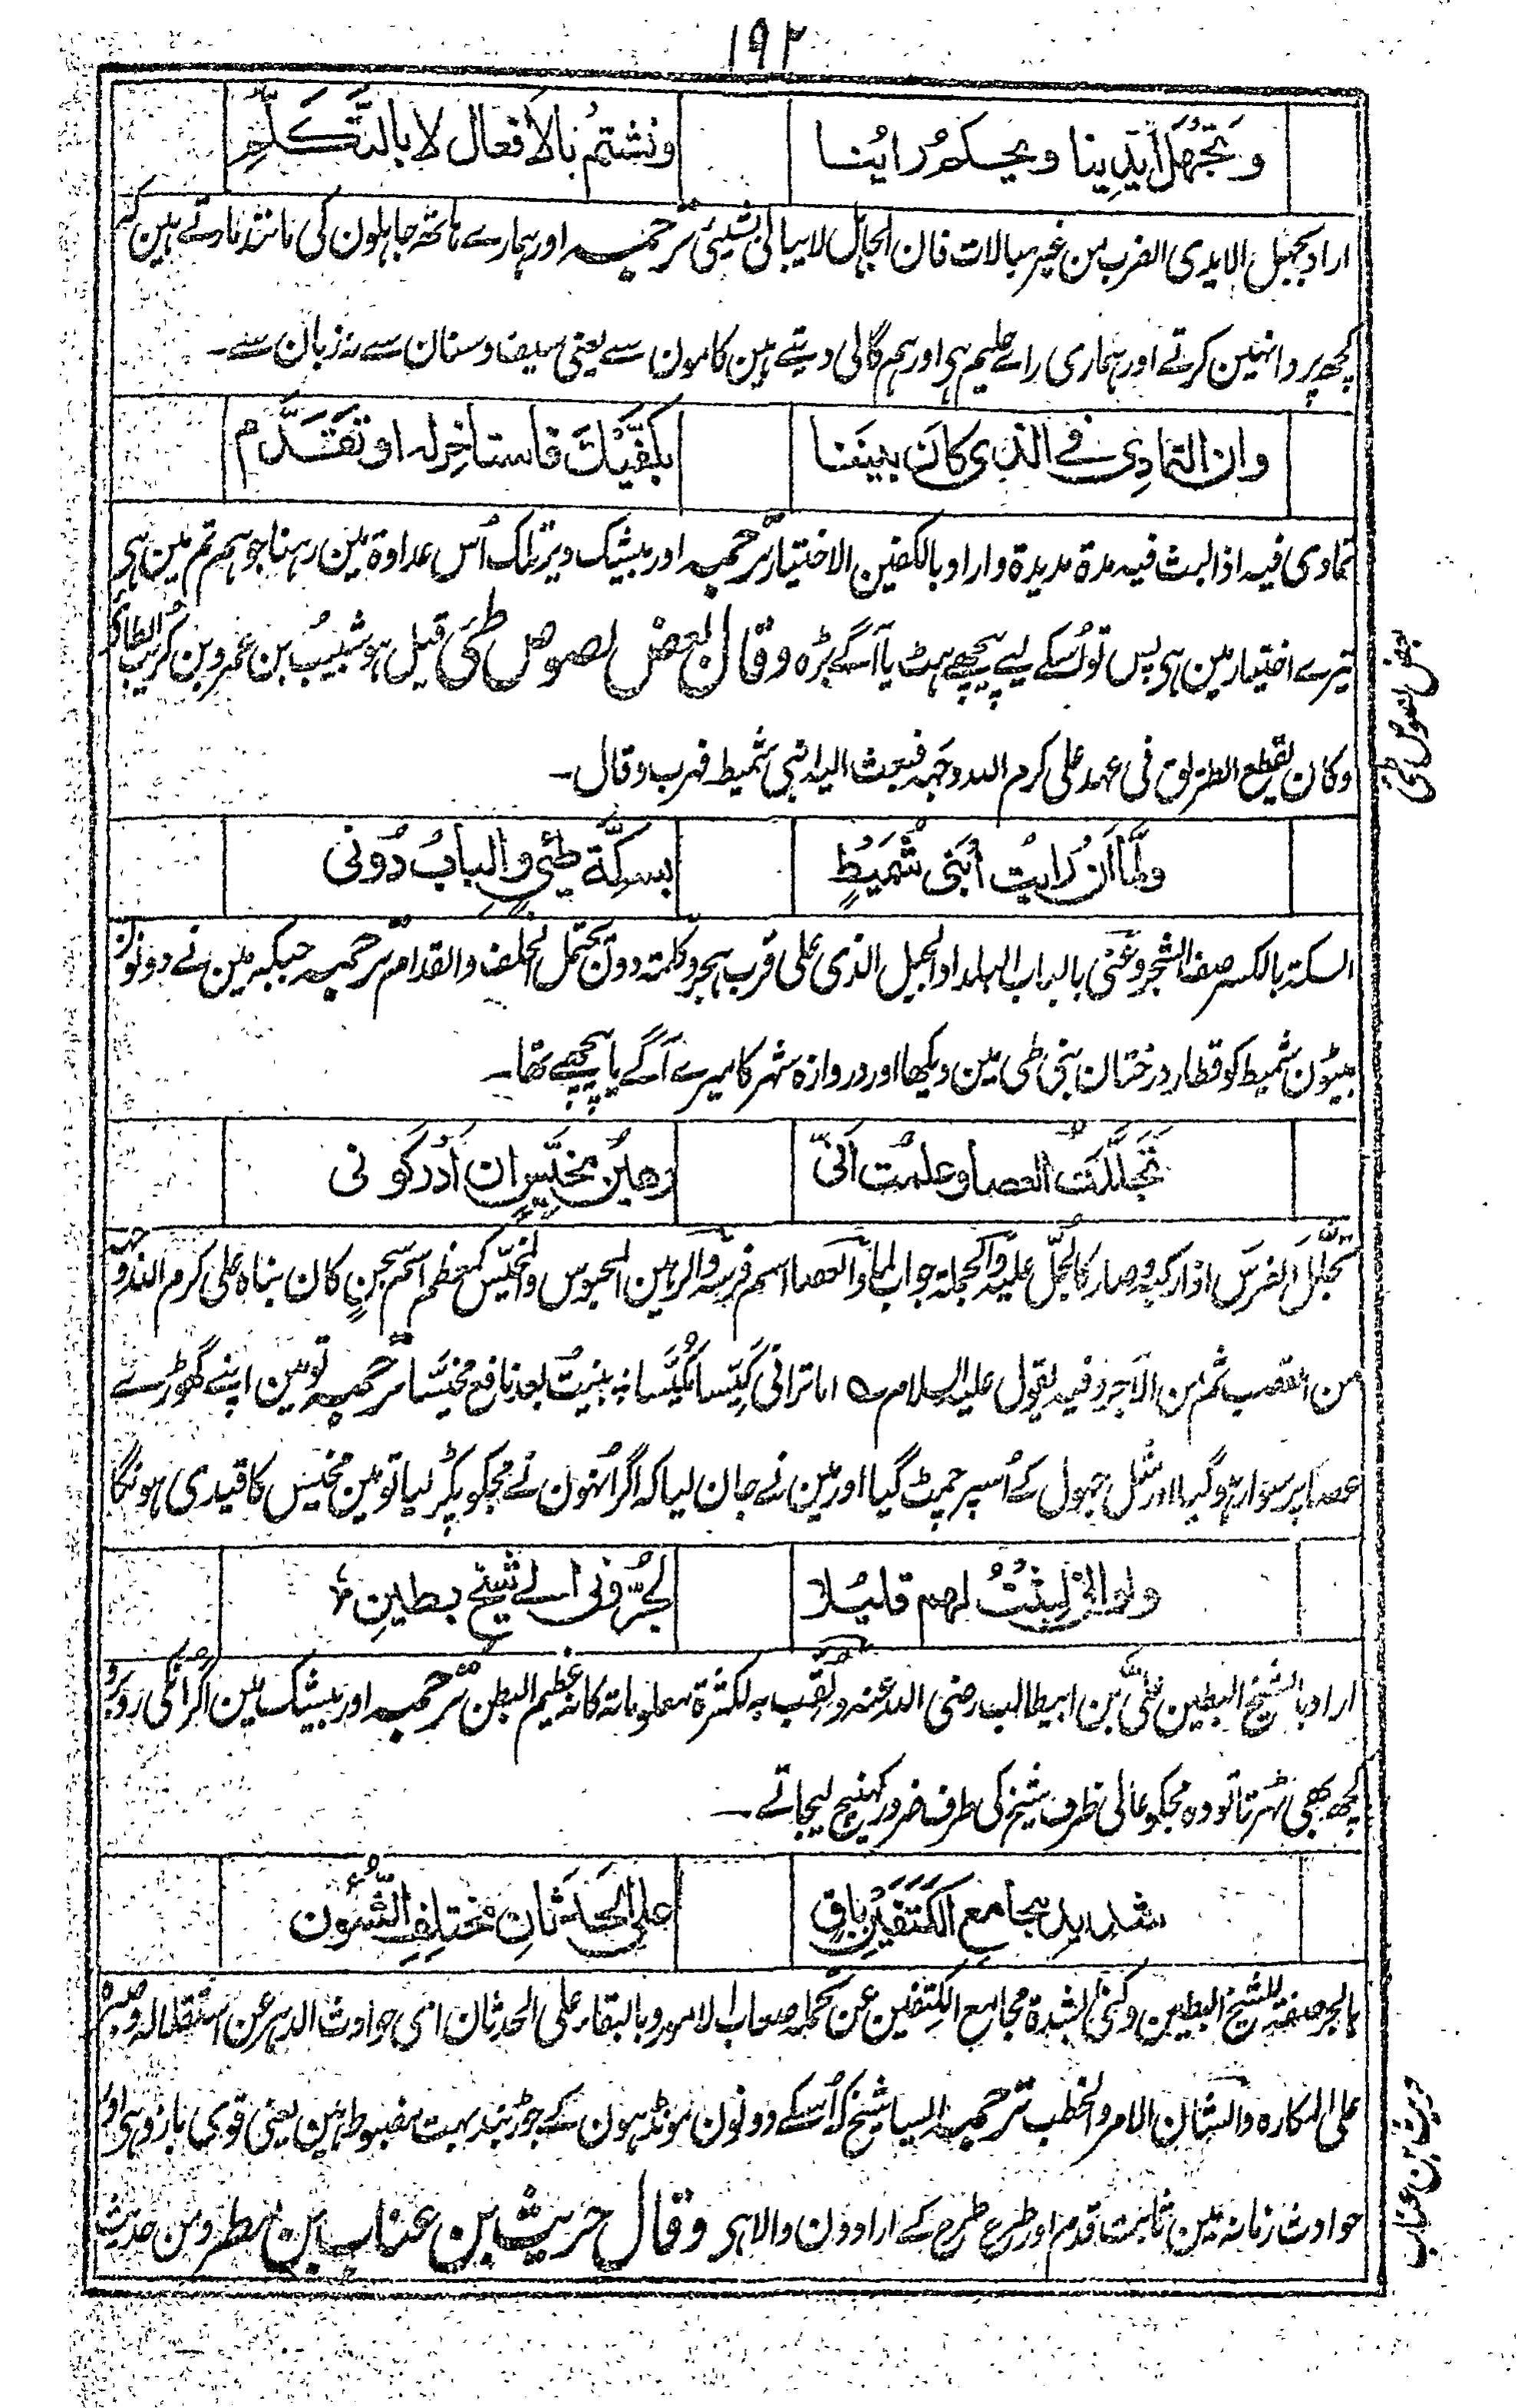 ۱۹۲
وَتَجْهَلُ اَيْدِينا ويحكمُ رايُنا ونشتمُ بالأفعال لا بالتَّكَلُّمِ
اراد بجہل الایدی الضرب من غیر مبالات فان الجاہل لا یبالی بشیئی ترجمہ اور ہمارے ہاتھ جاہلون کی مانند مارتے ہین کہ
کچھ پروا نہین کرتے اور ہماری راے حلیم ہی اور ہم گالی دیتے ہین کامون سے یعنی سیف و سنان سے نہ زبان سے۔
وان التمادِی فی الذی کانَ بیننا بکفَّیْكَ فاستاخِر له او تَقَدَّم
تمادی فیہ اذا لبث فیہ مدة مدیدة واراد بالکفین الاختیار ترجمہ اور بیشک دیر تک اُس عداوة مین رہنا جو ہم تم مین ہی
تیرے اختیار مین ہی پس تو اُسکے لیے پیچھے ہٹ یا آگے بڑہ وقال بعض لصوص طَیَ قیل ہو شبیبُ بن عمرو بن کُرَیب الطائی
بعض لصوص طی
وکان یقطع الطریق فی عہد علی کرم اللہ وجہہ فبعث الیہ ابنی شمیط فہرب وقال۔
ولمّا اَنْ رَایتُ اُبنَی شُمَیطٍ بسِکَّة طَیّئی والبابُ دُونی
السکة بالکسر صف الشجر وعنی بالباب البلد او الجبل الذی علی قرب ہجر وکلمتہ دون تحتمل الخلف والقدام ترجمہ جبکہ مین نے دونون
بیٹون شمیط کو قطار درختان بنی طی مین دیکھا اور دروازہ شہر کا میرے آگے یا پیچھے تھا۔
تَجَلَّلتُ العصا وعلمتُ اَنّی رهینُ مُخَیَّسٍ اِن اَدْرَکونی
تجلَّلَ الفرسَ اذا رکبہ وصار کالجُلّ علیہ والجملة جواب لما والعصا اسم فرسہ والرہین المحبوس والمخیّس کمعظم اسم سجنٍ کان بناہ علی کرم اللہ وجہہ
من القصب ثم من الآجر وفیہ یقول علیہ السلام ؎ اما ترانی کَیِّسا مُکَیَّسا ؞ بنیتُ بعد نافع مخیَّسا ترجمہ تو مین اپنے گھوڑے
عصا پر سوار ہو گیا اور مثل جھول کے اُسپر چمٹ گیا اور مین نے جان لیا کہ اگر اُنہون نے مجکو پکڑ لیا تو مین مخیس کا قیدی ہونگا
ولو انّی لبِثتُ لهم قلیلا لجَرّونی الی شیخ بطینِ
اراد بالشیخ البطین علیّ بن ابیطالب رضی اللہ عنہ ولقب بہ لکثرة معلوماتہ کانہ عظیم البطن ترجمہ اور بیشک مین اگر انکی روبرو
کچھ بھی ٹہرتا تو وہ مجکو عالی ظرف شیخ کی طرف ضرور کھینچ لیجاتے۔
شدیدِ مجامعِ الکَتفَینِ باقٍ علی الحَدَثانِ مختلِفِ الشُّؤون
بالجر صفة للشیخ البطین وکنی بشدة مجامع الکتفین عن تحملہ صعاب الامور وبالبقاء علی الحدثان ای حوادث الدہر عن استقلالہ وصبرہ
علی المکارہ والشان الامر والخطب ترجمہ ایسا شیخ کہ اُسکے دونون مونڈہون کے جوڑ بند بہت مضبوط ہین یعنی قوی بازو ہی اور
حوادث زمانہ مین ثابت قدم اور طرح طرح کے ارادون والا ہی وقال حریث بن عناب بن مطر ومن حدیثہ
حریث بن عناب